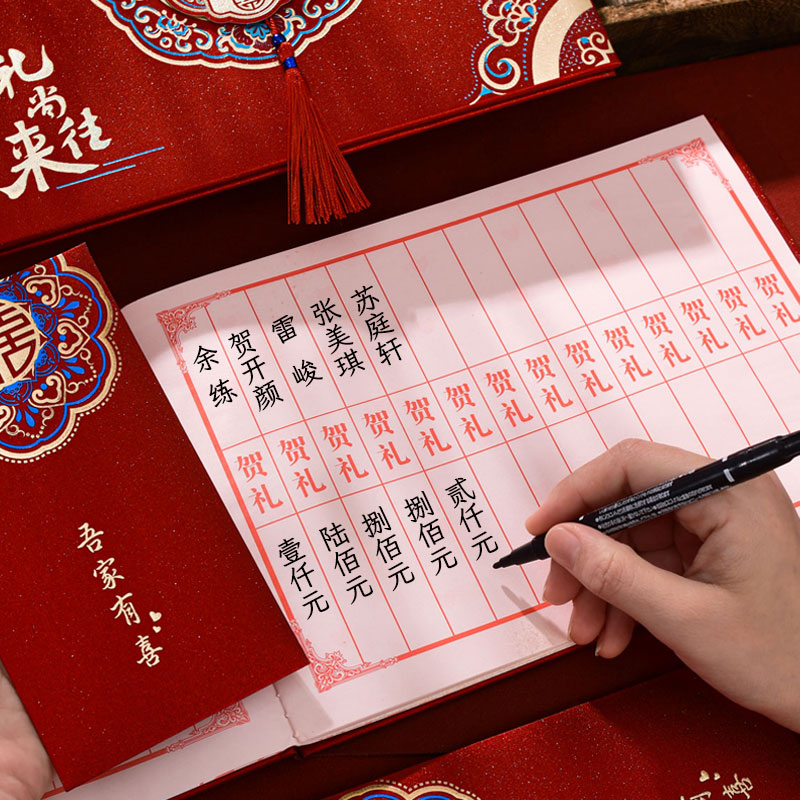 礼尚
来往
苏庭轩
张美琪
雷峻
贺开颜
余练
贺礼
贺礼
贺礼
贺礼
贺礼
贺礼
贺礼
贺礼
贺礼
贺礼
贺礼
贺礼
贺礼
贰仟元
捌佰元
捌佰元
陆佰元
壹仟元
吾家有喜